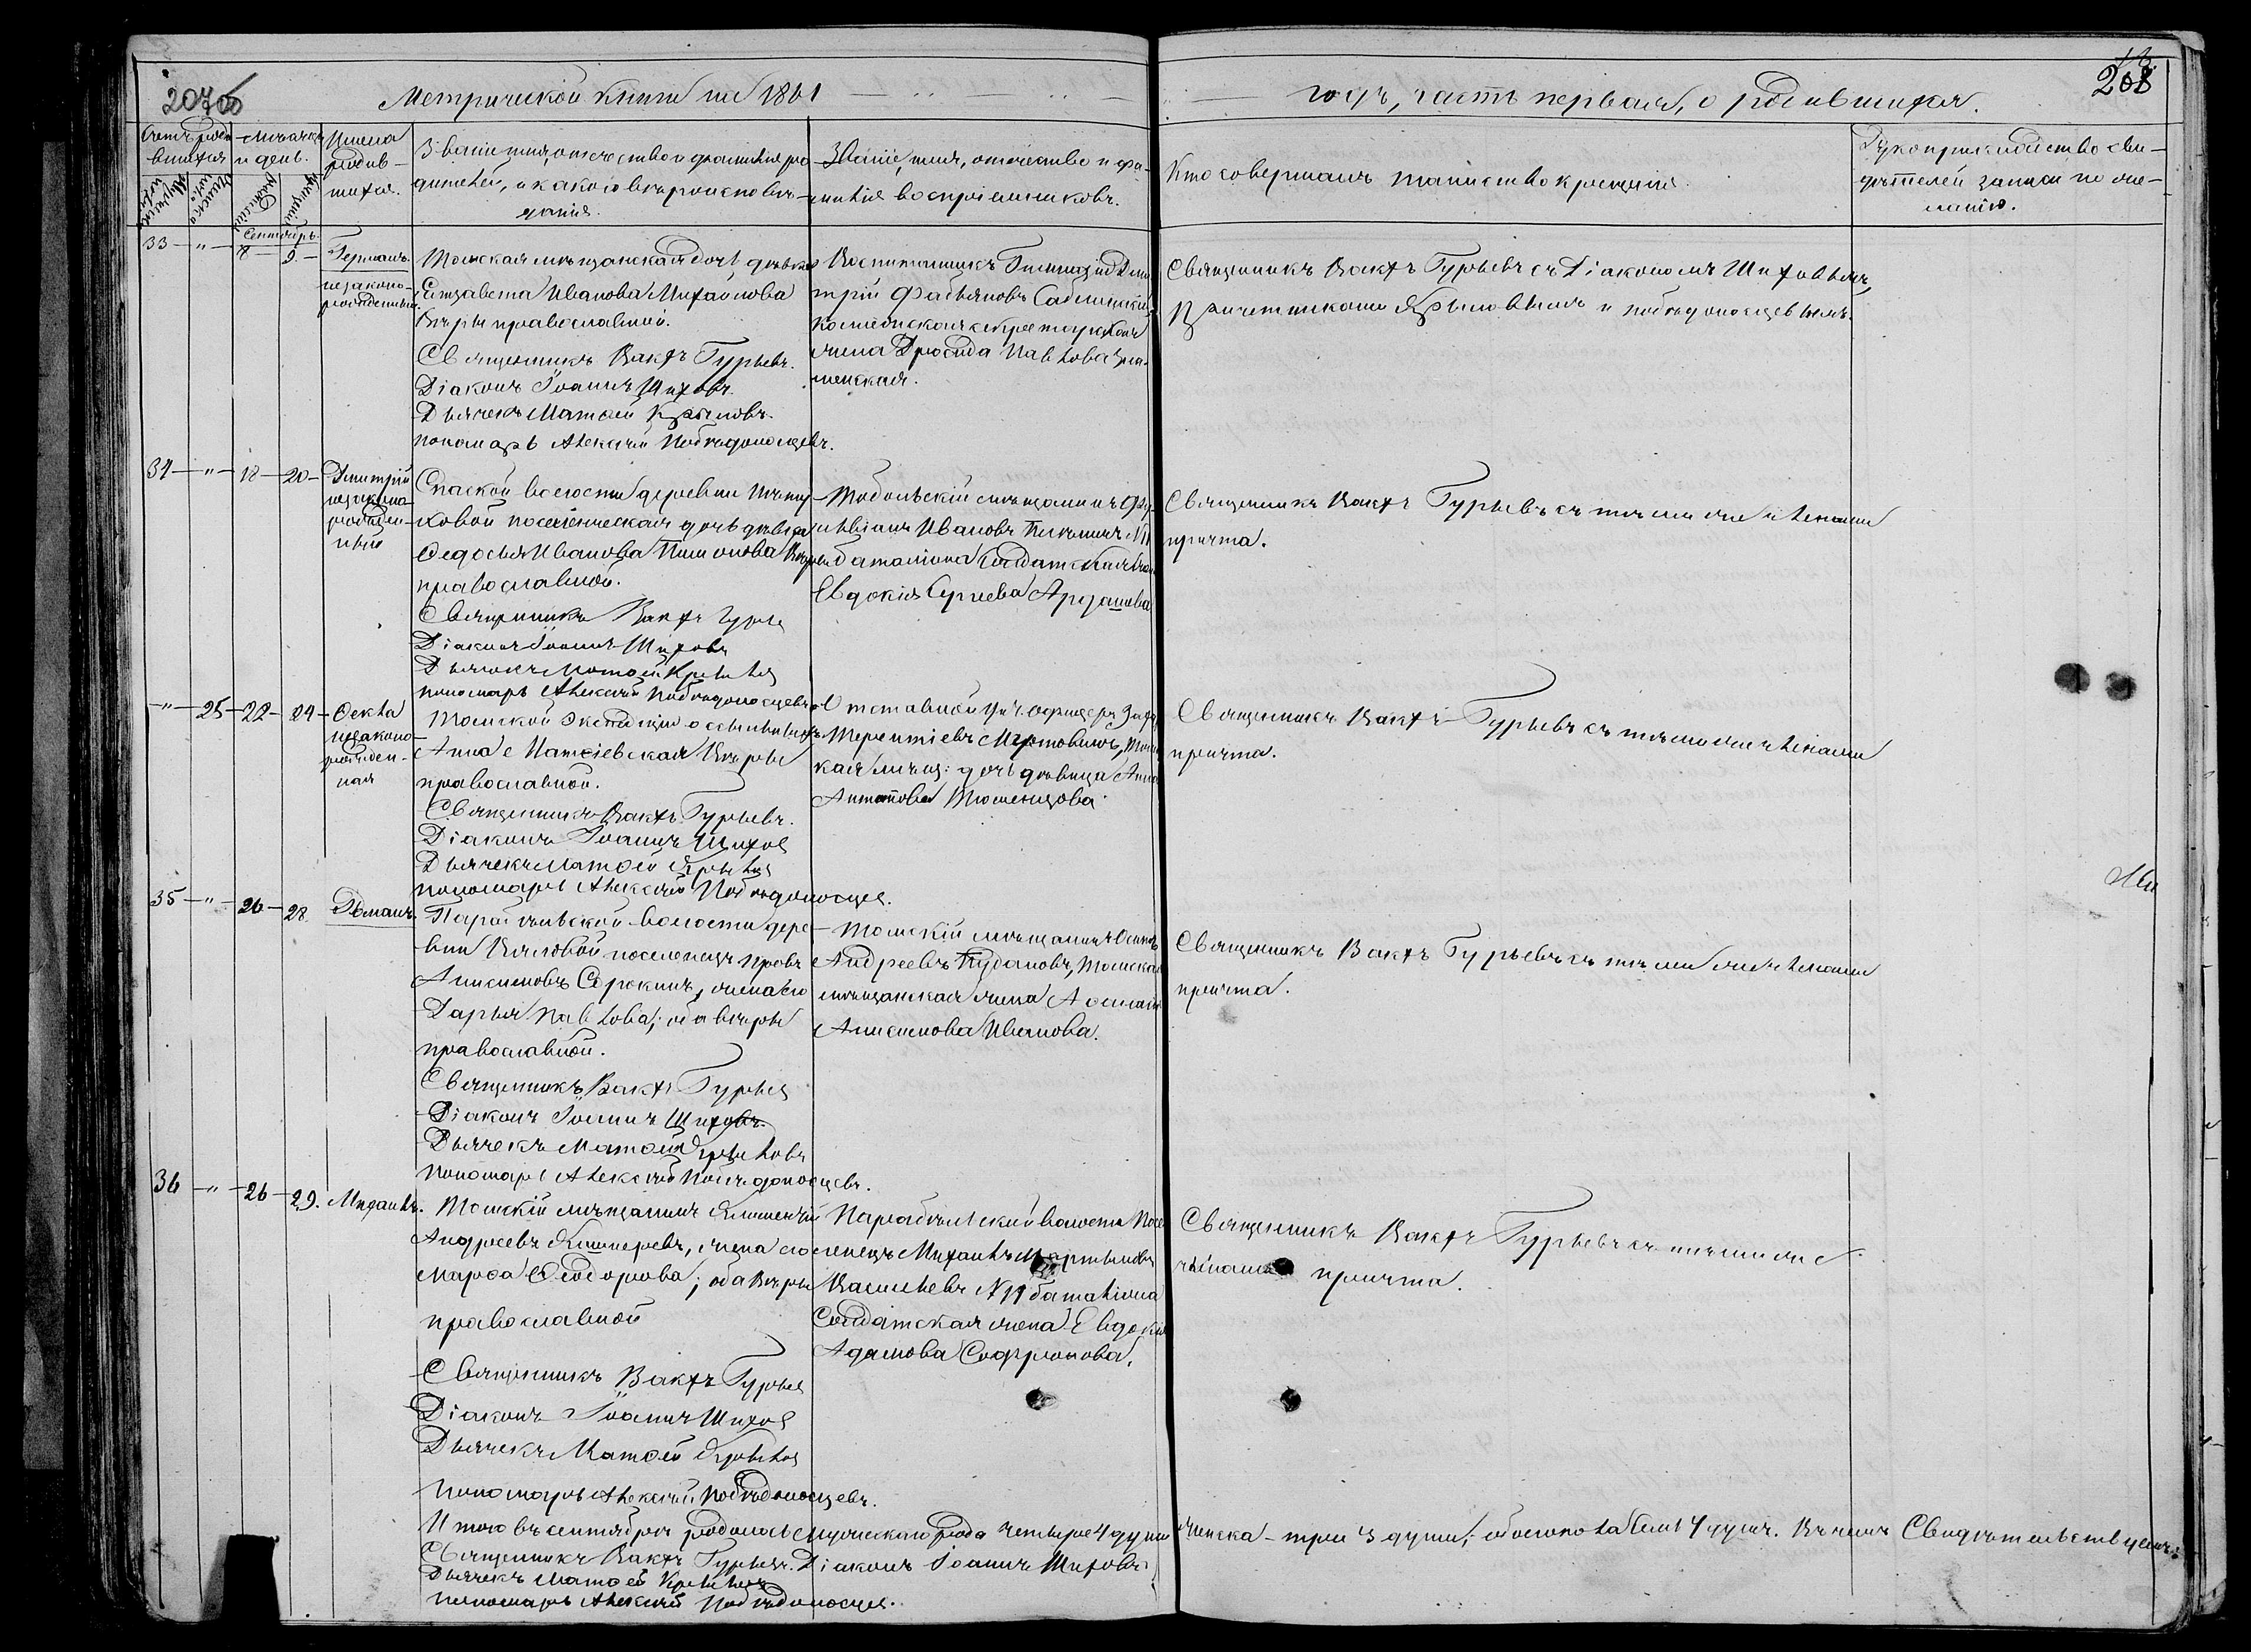 207об
Метрической книги на 1861
годъ, часть первая, о родившихся.
208
Счетъ роди-
вшихся
Мѣсяцъ
и день.
Имена
родив-
шихся.
Званіе, имя, отчество и фамилія ро-
дителей, и какого вѣроисповѣ-
данія.
Званіе, имя, отчество и фа-
милія воспріемниковъ.
Кто совершалъ таинство крещенія.
Рукоприкладство сви-
дѣтелей записи по же-
ланію.
Мужеска
Женска
Рожденія
Крещенія
Сентябрь.
33 — " — 8 — 9 —
Германъ
незаконо-
рожденный.
Томская мѣщанская дочь дѣвка
Елизавета Иванова Михайлова
Вѣры православной.
Священникъ Вакхъ Гурьевъ.
Діаконъ Іоаннъ Шиховъ.
Дьячекъ Матѳей Крыловъ.
пономарь Алексѣй Побѣдоносцевъ.
Воспитанникъ Гимназіи Дми-
трій Фабьяновъ Саблинскій,
жена Павлова Зна-
менская.
Священникъ Вакхъ Гурьевъ съ Діакономъ Шиховымъ,
Причетниками Крыловымъ и Побѣдоносцевымъ.
34 — " — 18 — 20 —
Дмитрій
незаконо-
рожден-
ный
Спаской волости деревни
ковой поселенческая дочь дѣвка
Ѳедосья Иванова Пимонова Вѣры
православной.
Священникъ Вакхъ Гурьев
Діаконъ Іоаннъ Шиховъ
Дьячекъ Матѳей Крылов
пономарь Алексѣй Побѣдоносцевъ
Тобольскій мѣщанинъ
Ивановъ №11
баталіона Солдатская
Евдокія Сергеева
Священникъ Вакхъ Гурьевъ съ тѣми же членами
причта.
— " — 25 — 22 — 24 —
Ѳекла
незаконо-
рожден-
ная
Томской Экспедиціи о ссыльныхъ
Анна Матѳіевская Вѣры
православной.
Священникъ Вакхъ Гурьевъ.
Діаконъ Іоаннъ Шихов
Дьячекъ Матѳей Крылов
пономарь Алексѣй Побѣдоносцев.
Отставной Ун. Офицеръ
Терентіевъ Том-
ская мѣщ: дочь дѣвица Анна
Антипова Тюменцова.
Священникъ Вакхъ Гурьевъ съ тѣми же членами
причта.
35 — " — 26 — 28.
Романъ.
Парабельской волости дере-
вни поселенецъ
Анисимовъ Сорокинъ, жена его
Дарья Павлова; оба вѣры
православной.
Священникъ Вакхъ Гурьев
Діаконъ Іоаннъ Шиховъ
Дьячекъ Матѳей Крыловъ
Пономарь Алексѣй Побѣдоносцевъ.
Томскій мѣщанинъ Осипъ
Андреевъ Томская
мѣщанская жена
Анисимова Иванова.
Священникъ Вакхъ Гурьевъ съ тѣми же членами
причта.
36 — " — 26 — 29.
Михаилъ.
Томскій мѣщанинъ Климентій
Андреевъ жена его
Марѳа Ѳеодорова; оба Вѣры
православной
Священникъ Вакхъ Гурьев
Діаконъ Іоаннъ Шихов
Дьячекъ Матѳей Крылов
пономарь Алексѣй Побѣдоносцевъ.
Парабельской волости Посе-
ленецъ Михаилъ Мартыновъ
Васильевъ №11 баталіона
Солдатская жена Евдокія
Адамова Софронова.
Священникъ Вакхъ Гурьевъ съ тѣми же
членами причта.
Итого въ сентябрѣ родилось мужескаго рода четыре 4 души женска — три 3 души; обоего пола семь 7 душъ. Въ чемъ Свидѣтельствуемъ:
Священникъ Вакхъ Гурьевъ. Діаконъ Іоаннъ Шиховъ
Дьячекъ Матѳей Крылов
пономарь Алексѣй Побѣдоносцев.